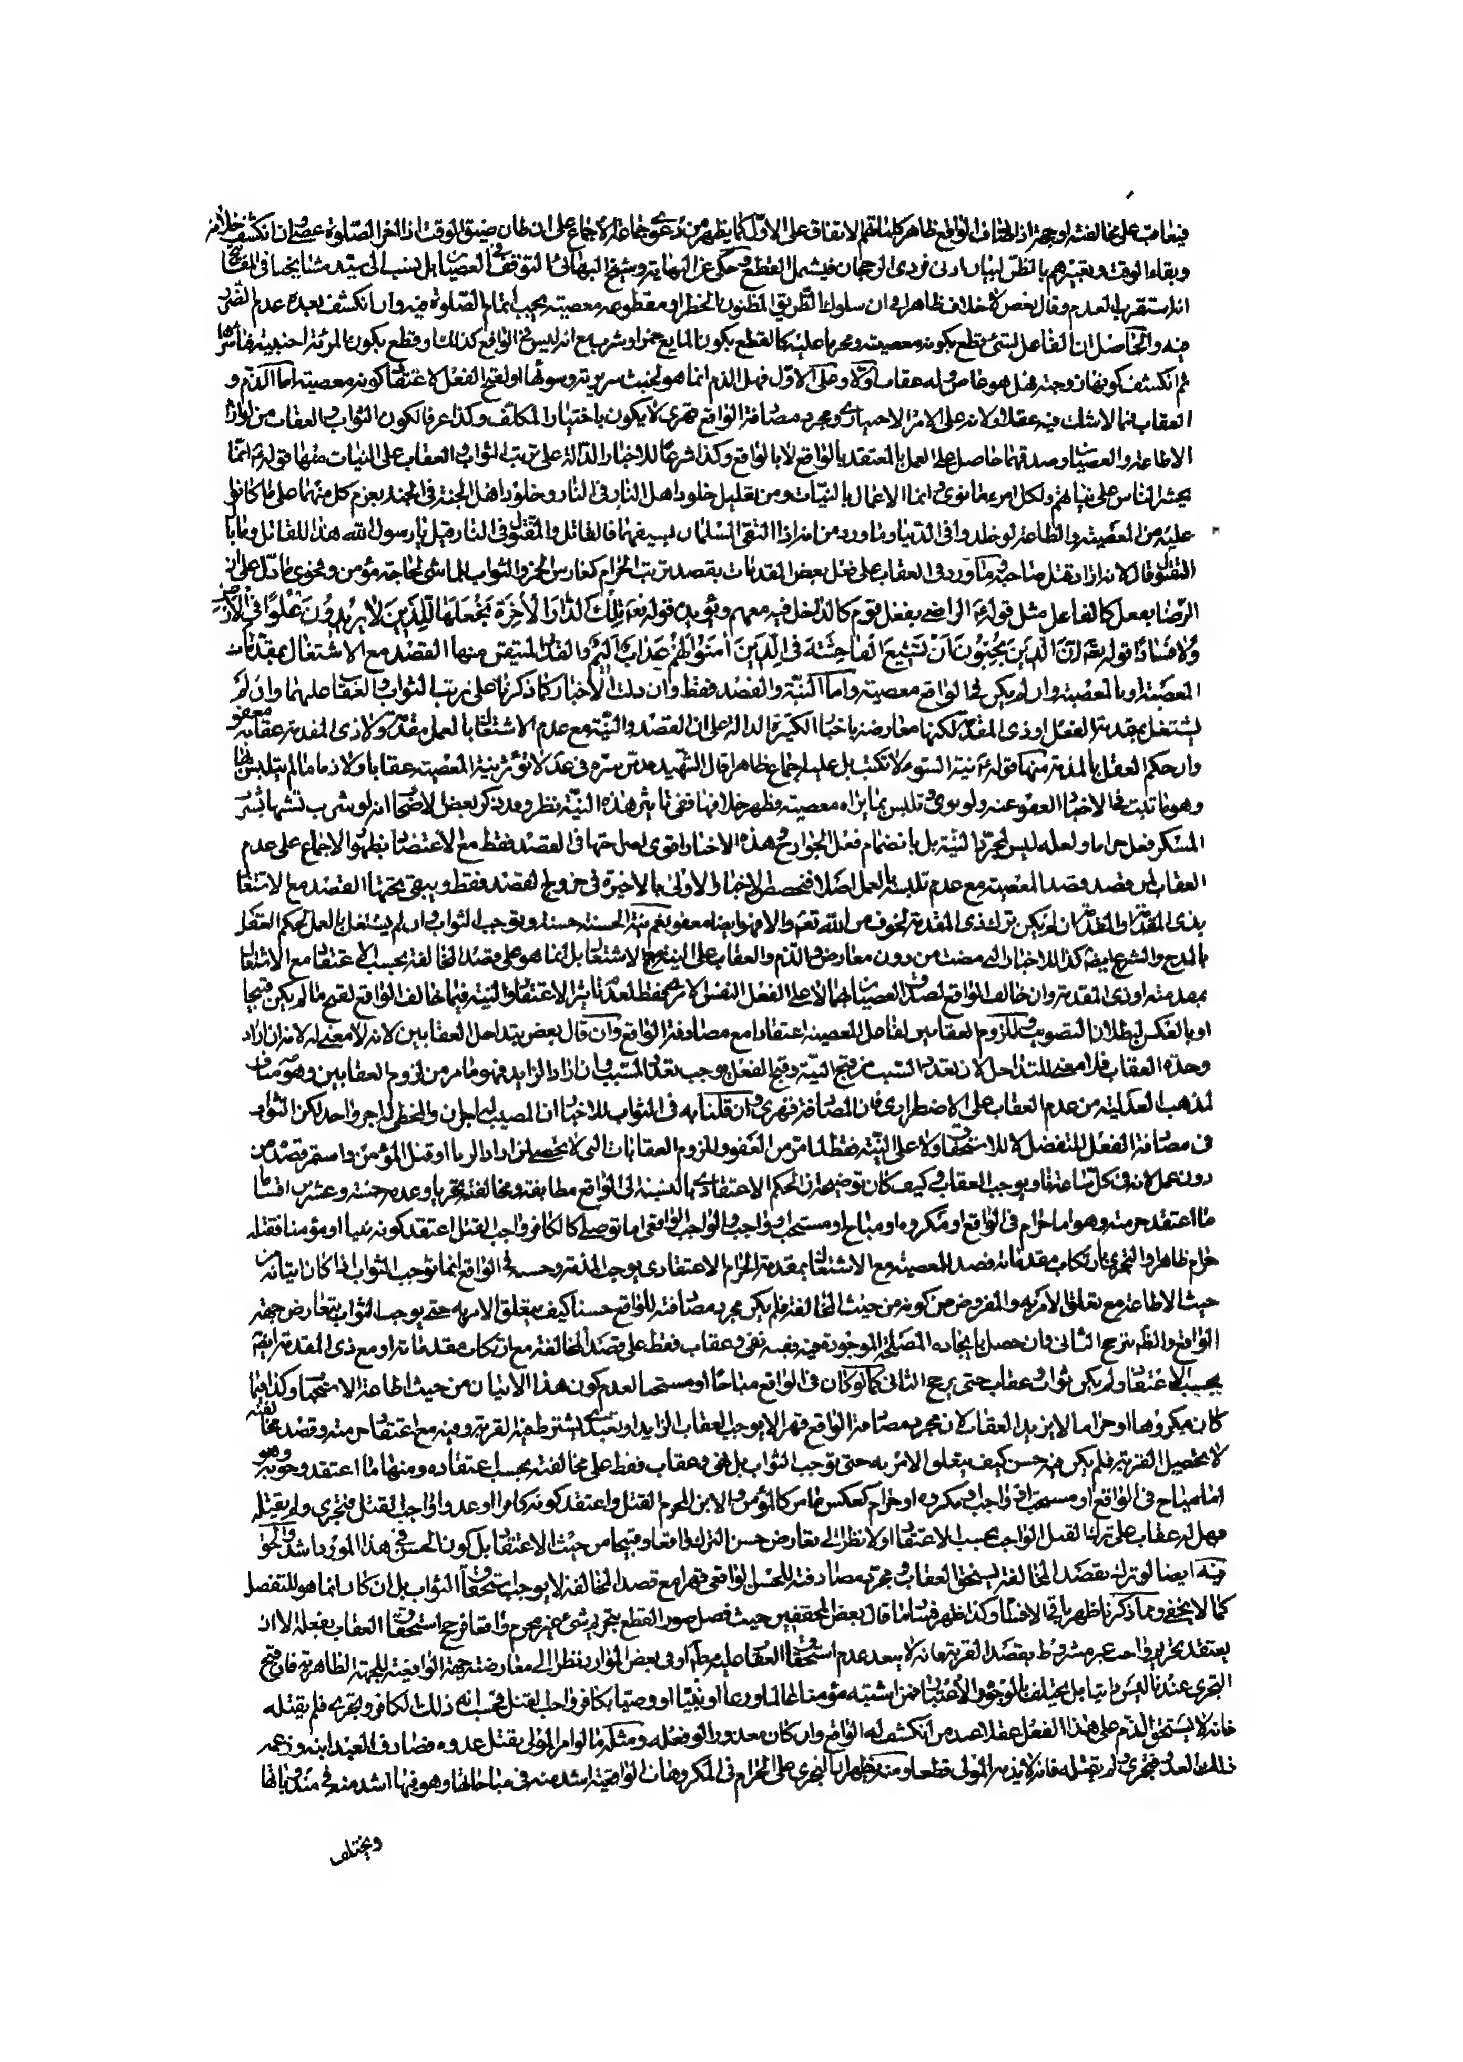 فيعاقب على مخالفته اوجه اذا طابقت الواقع ظاهر كلماتهم الاتفاق على الاول كما يظهر من دعوى جماعة الاجماع على ان ظان ضيق الوقت اذا اخر الصلوة عصى وان انكشف خلافه
وبقاء الوقت وتعبيرهم بالظن لبيان ادنى فردى الرجحان فيشمل القطع وحكى عن النهاية وشيخنا البهائى التوقف فى العصيان بل ينسب الى سيد مشايخنا فى المفاتيح
انه استقرب العدم وقال بعض لا خلاف ظاهرا فى ان سلوك الطريق المظنون الخطر او مقطوعه معصيته يجب اتمام الصلوة فيه وان انكشف بعده عدم الضرر
فيه والحاصل ان الفاعل لشىء قطع بكونه معصيته ومجريا عليه كالقطع بكون المايع خمرا وشربه مع انه ليس فى الواقع كذلك او قطع بكون المرئة اجنبية فباشرها
ثم انكشف كونها زوجته فهل هو عاص وله عقاب اولا وعلى الاول فهل الذم انما هو لخبث سريرته وسوئها او لقبح الفعل لاعتقاد كونه معصيته اما الذم و
العقاب فمما لا شك فيه عقلا ولانه على الامر الاختيارى ومجرد مصادفة الواقع قهرى لا يكون باختيار المكلف وكذا عرفا لكون الثواب والعقاب من لوازم
الاطاعة والعصيان وصدقهما حاصل على العمل بالمعتقد بالواقع لا بالواقع وكذا شرعا للاخبار الدالة على ترتب الثواب والعقاب على النيات منها قوله ع انما
يحشر الناس على نياتهم ولكل امرء ما نوى وانما الاعمال بالنيات ومن تعليل خلود اهل النار فى النار وخلود اهل الجنة فى الجنة بعزم كل منهما على ما كانوا
عليه من المعصية والطاعة لو خلدوا فى الدنيا وما ورد من انه اذا التقى المسلمان بسيفهما فالقاتل والمقتول فى النار قيل يا رسول الله هذا للقاتل وما بال
المقتول قال لانه اراد قتل صاحبه وما ورد فى العقاب على فعل بعض المقدمات بقصد ترتب الحرام كغارس الخمر والثواب للماشى لحاجة مؤمن وفحوى ما دل على ان
الرضا بفعل كالفاعل مثل قوله ع الراضى بفعل قوم كالداخل فيه معهم ويؤيده قوله تع تلك الدار الاخرة نجعلها للذين لا يريدون علوا فى الارض
ولا فسادا وقوله تع ان الذين يحبون ان تشيع الفاحشة فى الذين امنوا لهم عذاب اليم والقدر المتيقن منها القصد مع الاشتغال بمقدمات
المعصية او بالمعصية وان لم يكن فى الواقع معصية واما النية والقصد فقط وان دلت الاخبار كما ذكرنا على ترتب الثواب والعقاب عليهما وان لم
يشتغل بمقدمة الفعل او ذى المقدمة لكنها معارضة باخبار الكثيرة الدالة على ان القصد والنية مع عدم الاشتغال بالعمل مقدمة ولا ذى المقدمة عقابه معفو
وان حكم العقل بالمذمة منها قوله ع نية السوء لا تكتب بل عليه اجماع ظاهرا قال الشهيد قدس سره فى عد لا تؤثر نية المعصية عقابا ولا ذما ما لم يتلبس بها
وهو ما ثبت فى الاخبار العفو عنه ولو نوى وتلبس بما يراه معصية وظهر خلافها ففى تاثير هذه النية نظر وقد ذكر بعض الاصحاب انه لو شرب تشبها بشرب
المسكر فعل حراما ولعله ليس لمجرد النية بل بانضمام فعل الجوارح هذه الاخبار اقوى لصراحتها فى القصد فقط مع الاعتضاد بظهور الاجماع على عدم
العقاب لمن قصد قصد المعصية مع عدم تلبسه بالعمل اصلا فتخصص الاخبار الاولى بالاخيرة فى خروج القصد فقط ويبقى تحتها القصد مع الاشتغال
بذى المقدمة والمقدمة ان لم يكن ترك ذى المقدمة لخوف من الله تع والا فهو ايضا معفو نعم نية الحسنة حسنة وتوجب الثواب وان لم يشتغل بالعمل لحكم العقل
بالمدح والشرع ايضا كذلك للاخبار التى مضت من دون معارض والذم والعقاب على النية مع الاشتغال بل انما هو على قصد المخالفة بحسب الاعتقاد مع الاشتغال
بمقدمته او ذى المقدمة وان خالف الواقع لصدق العصيان لا على الفعل النفس الامرى فقط لعدم تاثير الاعتقاد والنية فيما خالف الواقع لقبح ما لم يكن قبيحا
او بالعكس لبطلان التصويب وللزوم العقابين لفاعل المعصية اعتقادا مع مصادفة الواقع وان قال بعض بتداخل العقابين لانه لا معنى له لانه ان اراد
وحدة العقاب فلا معنى للتداخل لان تعدد السبب من قبح النية وقبح الفعل يوجب تعدد المسبب وان اراد الزايد فهو ما مر من لزوم العقابين وهو مناف
لمذهب العدلية من عدم العقاب على الاضطرارى فان المصادفة قهرى وان قلنا به فى الثواب للاخبار ان المصيب له اجران والمخطى له اجر واحد لكن الثواب
فى مصادفة الفعل للتفضل لا للاستحقاق ولا على النية فقط لما مر من العفو وللزوم العقابات التى لا تحصى لمن اراد الربا او قتل المؤمن واستمر قصده من
دون عمل لانه فى كل ساعة قا ويوجب العقاب وكيف كان توضيحه ان الحكم الاعتقادى بالنسبة الى الواقع مطابقة ومخالفة تجريا وعدمه خمسة وعشرين اقسام
ما اعتقد حرمته وهو اما حرام فى الواقع او مكروه او مباح او مستحب او واجب والواجب الواقعى اما توصلى كالكافر واجب القتل اعتقد كونه نبيا او مؤمنا فقتله
حرام ظاهرا والتجرى بارتكاب مقدماته قصد المعصية مع الاشتغال بمقدمة الحرام الاعتقادى يوجب المذمة وحسنه فى الواقع انما توجب الثواب اذا كان اتيانه من
حيث الاطاعة مع تعلق الامر به والمفروض من كونه من حيث المخالفة فلم يكن مجرد مصادفته للواقع حسنا كيف يتعلق الامر به حتى يوجب الثواب بتعارض جهته
الواقع والظاهر بترجيح الثانى وان حصل بايجاده المصلحة الموجودة فيه نفسه نفى وعقاب فقط على قصد المخالفة مع ارتكاب مقدماته او مع ذى المقدمة ايضا
بحسب الاعتقاد ولم يكن ثواب وعقاب حتى يرجح الثانى كما لو كان فى الواقع مباحا او مستحبا لعدم كون هذا الاتيان من حيث اطاعة الاستحباب وكذا فيما
كان مكروها او حراما لا يزيد العقاب لان مجرد مصادفة الواقع قهرا لا يوجب العقاب الزايد او تعبدى يشترط فيه القربة وفيه مع اعتقاد حرمته وقصد مخالفته
لا يحصل القربة فلم يكن فيه حسن كيف يتعلق الامر به حتى توجب الثواب بل هو عقاب فقط على مخالفته بحسب اعتقاده ومنها ما اعتقد وجوبه وهو
اما مباح فى الواقع او مستحب او واجب او مكروه او حرام كعكس ما مر كالمؤمن والابن المحرم القتل واعتقد كونه كافرا او عدوا واجب القتل فتجرى ولم يقتله
فهل له عقاب على ترك القتل الواجب بحسب الاعتقاد او لا نظر الى تعارض حسن الترك واقعا وقبيحا من حيث الاعتقاد بل كون الحسن فى هذا المورد اشد والحق
فيه ايضا لو ترك بقصد المخالفة يستحق العقاب ومجرد مصادفته للحسن الواقعى قهرا مع قصد المخالفة لا يوجب استحقاق الثواب بل ان كان انما هو للتفضل
كما لا يخفى ومما ذكرنا ظهر باقى الاقسام وكذا ظهر فساد ما قال بعض المحققين حيث فصل صور القطع بتحريم شىء غير محرم واقعا فرجح استحقاق العقاب بفعله الا ان
يعتقد تحريم واجب غير مشروط بقصد القربة فانه لا يبعد عدم استحقاق العقاب عليه مطلقا او فى بعض الموارد نظرا الى معارضة جهة الواقعية للجهة الظاهرية فان قبح
التجرى عندنا ليس ذاتيا بل يختلف بالوجوه والاعتبار فمن اشتبه مؤمنا عالما ورعا او نبيا او وصيا بكافر واجب القتل فحسب انه ذلك الكافر وتجرى فلم يقتله
فانه لا يستحق الذم على هذا الفعل عقلا عند من انكشف له الواقع وان كان معذورا لو فعله ومثله ما لو امر المولى بقتل عدوه فصادف العبد ابنه وزعمه
ذلك العدو فتجرى ولم يقتله فانه لا يذمه المولى قطعا ومنه يظهر ان التجرى على الحرام فى المكروهات الواقعية اشد منه فى مباحاتها وهو فيها اشد منه فى مندوباتها
ويختلف